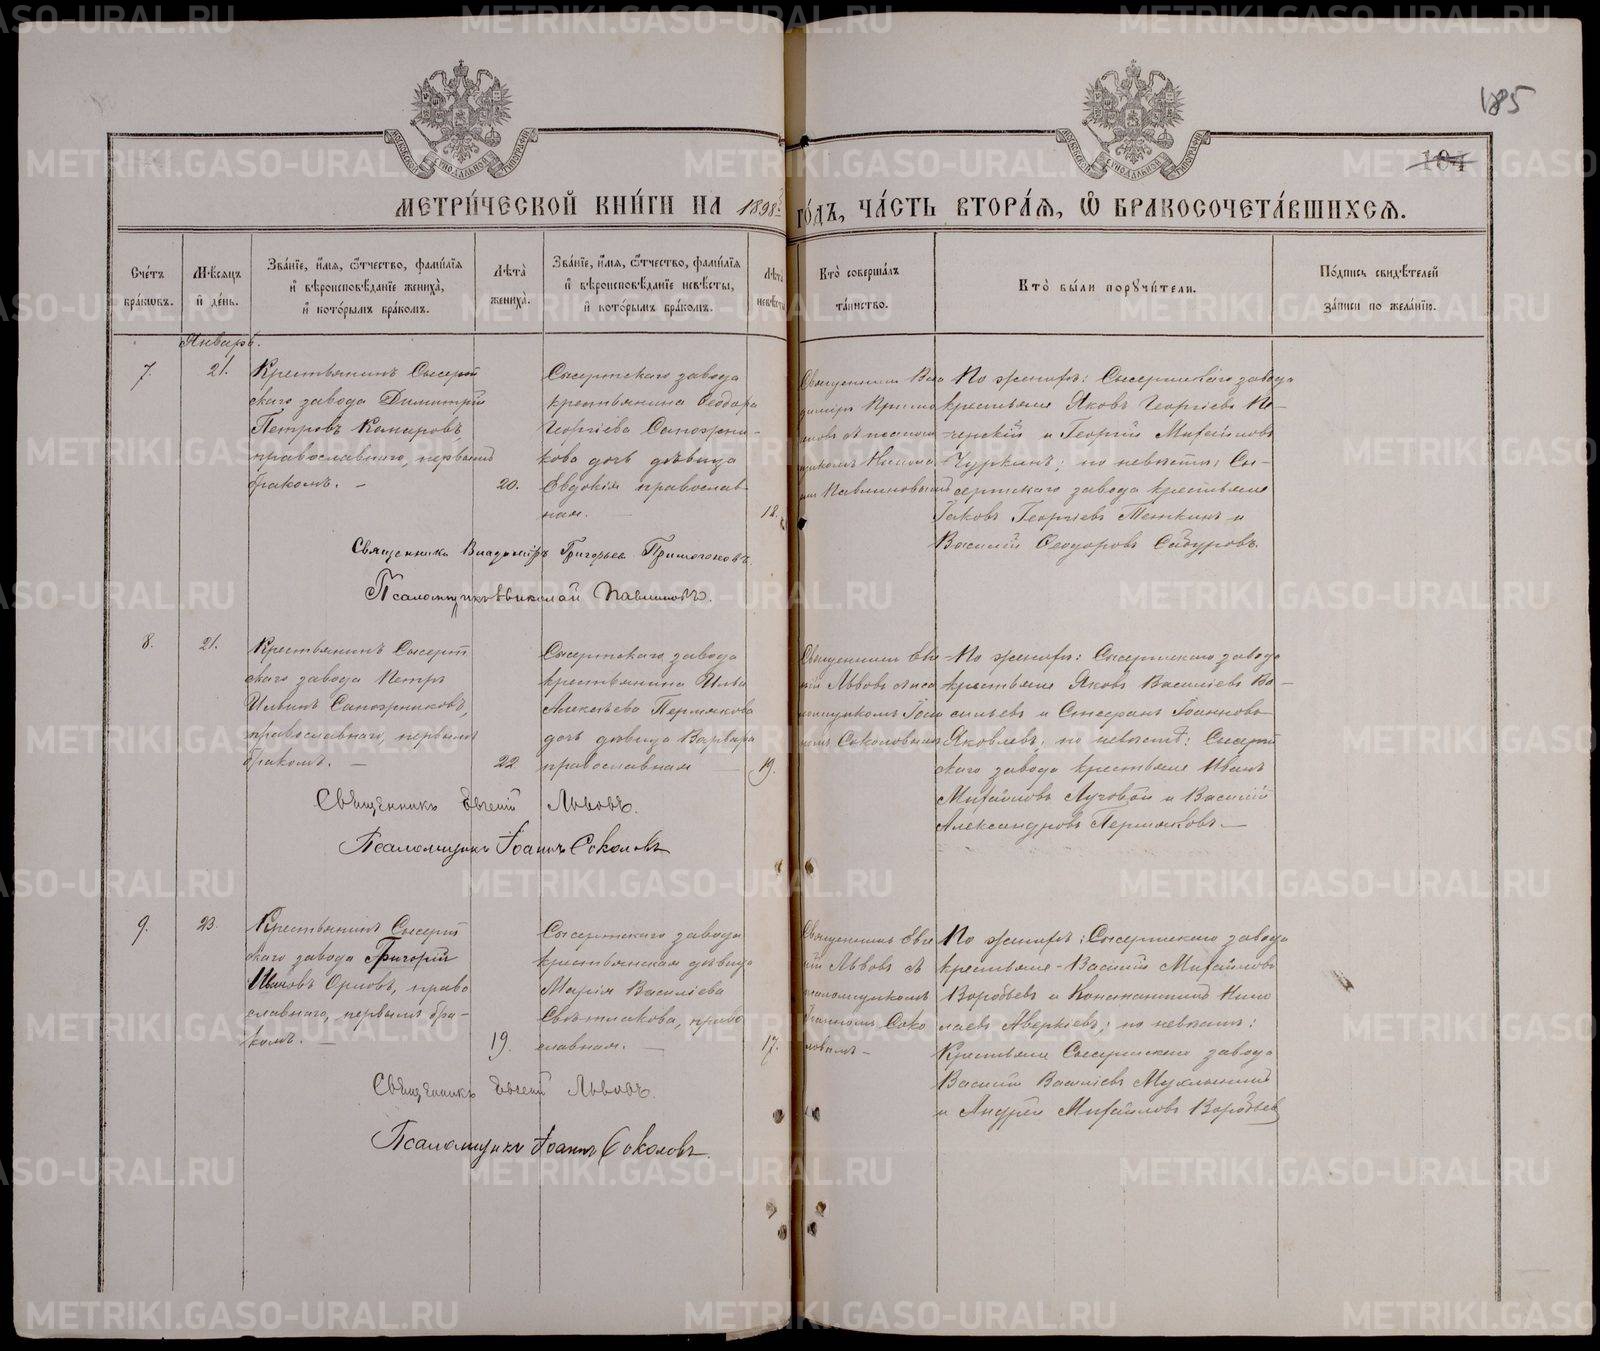 185
104
МЕТРИ́ЧЕСКОЙ КНИ́ГИ НА 1898й ГО́ДЪ, ЧА́СТЬ ВТОРА́Я, Ѿ БРАКОСОЧЕТА́ВШИХСЯ.
Сче́тъ бра́ковъ.
Мѣ́сяцъ и҆ де́нь.
Зва́нїе, и҆́мя, ѻ҆́тчество, фами́лїя и҆ вѣроисповѣ́данїе жениха̀, и҆ кото́рымъ бра́комъ.
Лѣ́та жениха̀.
Зва́нїе, и҆́мя, ѻ҆́тчество, фами́лїя и҆ вѣроисповѣ́данїе невѣ́сты, и҆ кото́рымъ бра́комъ.
Лѣ́та невѣ́сты
Кто̀ соверша́лъ та́инство.
Кто̀ бы́ли порꙋчи́тели.
По́дпись свидѣ́телей за́писи по жела́нїю.
Январь.
7.
21.
Крестьянинъ Сысерт
скаго завода Димитрій
Петровъ Комаровъ,
православнаго, первымъ
бракомъ. –
20.
Сысертскаго завода
крестьянина Ѳеодора
Георгіева Сапожни-
кова дочь дѣвица
Евдокія православ-
ная. —
18.
Священникъ Вла
димиръ
псалом
щикомъ Никола
емъ Павлиновымъ
По женихѣ: Сысертскаго завода
крестьяне Яковъ Георгіевъ Пе-
ченскій и Георгій Михайловъ
Чуркинъ; по невѣстѣ: Сы-
сертскаго завода крестьяне
Іаковъ Георгіевъ и
Василій Ѳеодоровъ Сабуровъ.
Священникъ Владиміръ Григорьевъ
Псаломщикъ Николай Павлиновъ.
8.
21.
Крестьянинъ Сысерт
скаго завода Петръ
Ильинъ Сапожниковъ,
православнаго, первымъ
бракомъ. –
22.
Сысертскаго завода
крестьянина Ильи
Алексѣева Пермякова
дочь дѣвица Варвара
православная —
19.
Священникъ Евге
ній Львовъ съ пса
ломщикомъ Іоан
номъ Соколовымъ
По женихѣ: Сысертскаго завода
крестьяне Яковъ Василіевъ Ва-
сильевъ и Стефанъ Іоанновъ
Яковлевъ; по невѣстѣ: Сысерт
скаго завода крестьяне Иванъ
Михайловъ Луговой и Василій
Александровъ Пермяковъ. —
Священникъ Евгеній Львовъ.
Псаломщикъ Іоаннъ Соколовъ
9.
23.
Крестьянинъ Сысерт
скаго завода Григорій
Ивановъ Орловъ, право
славнаго, первымъ бра-
комъ. —
19.
Сысертскаго завода
крестьянская дѣвица
Марія Василіева
Свѣтлакова, право
славная. —
17.
Священникъ Евге
ній Львовъ съ
псаломщикомъ
Іоанномъ Соко
ловымъ –
По женихѣ: Сысертскаго завода
крестьяне – Василій Михайловъ
Воробьевъ и Константинъ Нико
лаевъ Аверкіевъ; по невѣстѣ:
Крестьяне Сысертскаго завода
Василій Василіевъ Мухлынинъ
и Андрей Михайловъ Воробьевъ
Священникъ Евгеній Львовъ.
Псаломщикъ Іоаннъ Соколовъ.
METRIKI.GASO-URAL.RU